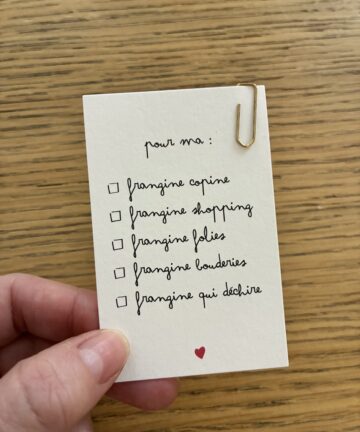 pour ma :
frangine copine
frangine shopping
frangine folies
frangine bouderies
frangine qui déchire